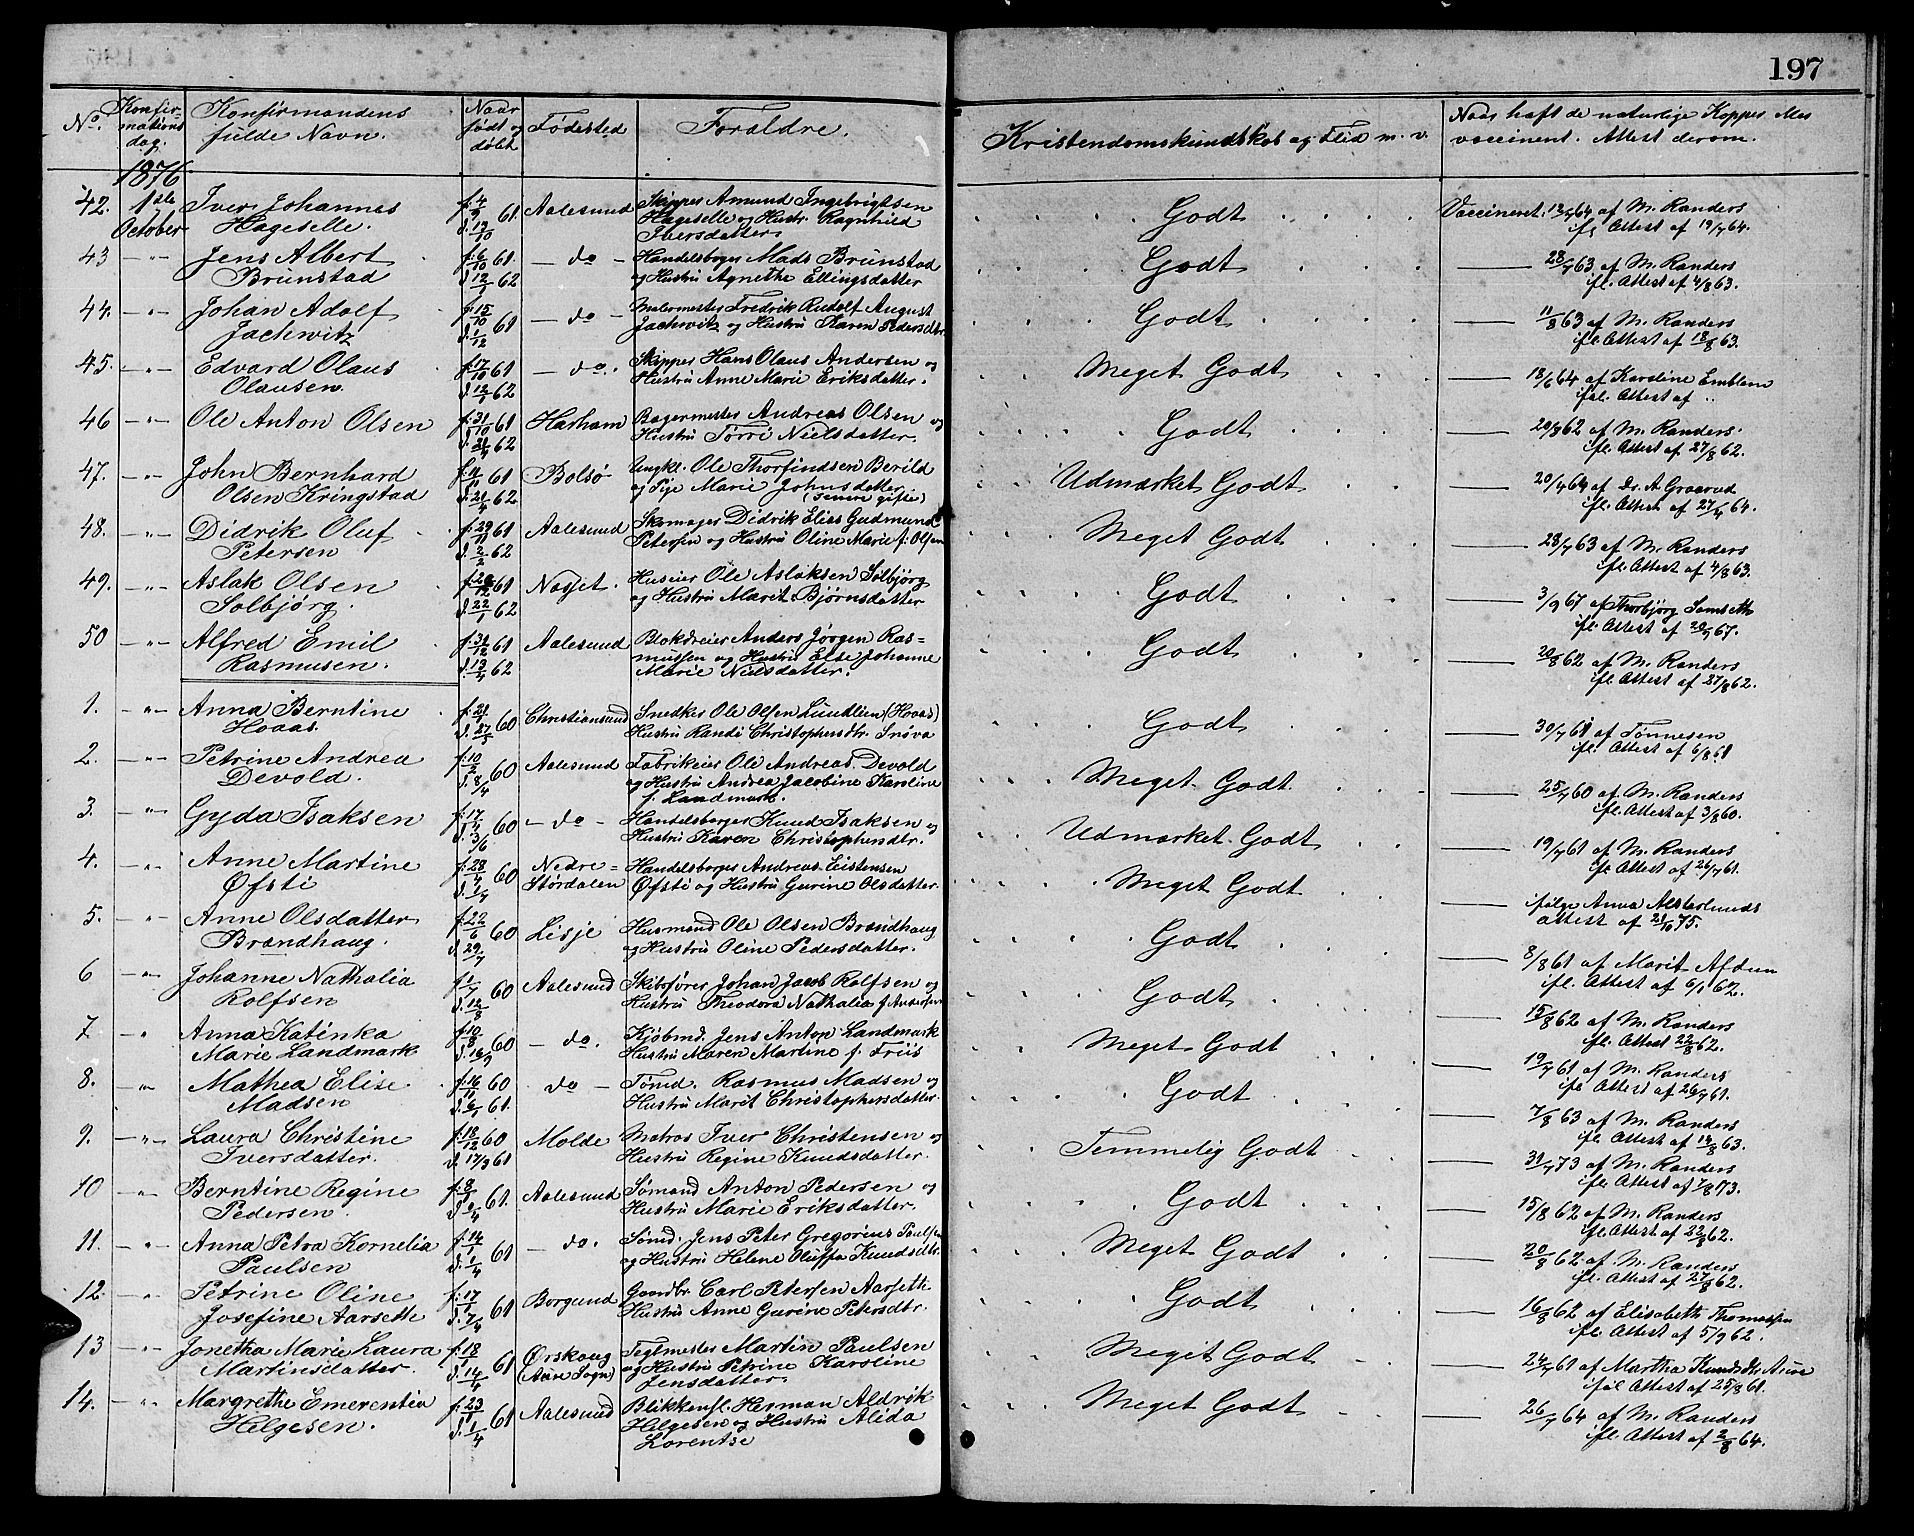 197
No. Konfirmationsdag. Konfirmandens fulde Navn. Naar født og døbt Fødested Forældre. Kristendomskundskab og Flid m. v. Naar haft de naturlige Kopper eller vaccineret. Attest derom.
1876
42. 1ste October Iver Johannes f. 4/9 61 Aalesund Skipper Amund Ingebrigtsen Godt Vaccineret 12/7 64 af M. Randers
Hageselle. d. 13/10 Hageselle og Hustr. Ragnhild ifl Attest af 19/7 64.
Ibersdatter
43 — " Jens Albert f. 6/10 61 — do — Handelsborger Mads Brunstad Godt — 28/7 63 af M. Randers
Brunstad d. 12/1 62 og Hustru Agnethe Ellingsdatter ifl. Attest af 4/8 63.
44. — " Johan Adolf f. 15/10 61 — do — Malermester Fredrik Rudolf August Godt — 11/8 63 af M. Randers
Jachwitz d. 1/12 Jachwitz og Hustru Karen Pedersdtr. ifl. Attest af 18/8 63.
45. — " Edvard Olaus f. 17/10 61 — do. Skipper Hans Olaus Andersen og Meget Godt — 18/6 64 af Karoline Emblem
Olausen d. 12/1 62 Hustru Anne Marie Eriksdatter. iføl. Attest af "
46 — " Ole Anton Olsen f. 31/10 61 Harham Bagermester Andreas Olsen og Godt — 20/8 62 af M. Randers
62 Hustru Torri Nielsdatter. ifl. Attest af 27/8 62.
47. — " John Bernhard f. 11/11 61 Bolsø Ungkl. Ole Thorfindsen Berild Udmærket Godt — 20/4 64 af Dr. A Graarud
Olsen Kringstad d. 21/4 62 og Pige Marie Johnsdatter (senere gifte) ifl. Attest af 27/4 64.
48. — " Didrik Oluf f. 29/11 61 Aalesund Skomager Didrik Elias Gudmund Meget Godt — 28/7 63 af M. Randers
Petersen d. 2/2 62 Petersen og Hustru Oline Marie f. Olsen ifl. Attest af 4/8 63.
49. — " Aslak Olsen 61 Nesset. Huseier Ole Aslaksen Solbjørg Godt — 3/9 67 af Thorbjørg
Solbjørg. d. 22/1 62 og Hustru Marit Bjørnsdatter ifl. Attest af 67.
50 — " Alfred Emil f. 31/12 61 Aalesund Blokdreier Anders Jørgen Ras= Godt — 20/8 62 af M. Randers
Rasmusen. 62 mussen og Hustru Else Johanne ifl. Attest af 27/8 62.
Marie Nielsdatter.
1. — " Anna Berntine f. 21/1 60 Christiansund Snedker Ole Olsen Lundlien (Hoaas) Godt — 30/7 61 af Tønnesen
Hoaas. Hustru Randi Christophersdtr. ifl. Attest af 6/8 61
2. — " Petrine Andrea f. 10/2 60 Aalesund Fabrikeier Ole Andreas Devold Meget Godt. — 25/7 60 af M. Randers
Devold. d. 8/4 og Hustru Andrea Jacobine Karoline ifl. Attest af 3/8 60.
f. Landmark.
3. — " Gyda Isaksen f. 17/4 60 — do — Handelsborger Knud Isaksen og Udmærket Godt — 19/7 61 af M. Randers
d. 3/6 Hustru Karen Christophersdtr. ifl. Attest af 26/7 61.
4. — " Anne Martine f. 28/4 60 Nedre= Handelsborger Andreas Eistensen Meget Godt — ifølge Anna
Øfsti Størdalen Øfsti og Hustru Gurine Olsdatter. attest af 21/10 75.
5. — " Anne Olsdatter f. 22/6 60 Lesje Husmand Ole Olsen Brændhaug Godt — 8/8 61 af Marit
Brændhaug. d. 29/7 og Hustru Oline Pedersdatter. ifl. Attest af 6/1 62.
6 — " Johanne Nathalia f. 1/7 60 Aalesund Skibsfører Johan Jacob Rolfsen og Godt — 15/8 62 af M. Randers
Rolfsen d. 12/8 Hustru Theodora Nathalia f. Andersen ifl. Attest 22/8 62.
7 — " Anna Katinka f. 10/8 60 — do. Kjøbmd. Jens Anton Landmark Meget Godt — 19/7 61 af M. Randers
Marie Landmark d. 16/9 Hustru Maren Martine f. Friis ifl Attest af 26/7 61.
8. — " Mathea Elise f. 16/11 60 do — Tømd. Rasmus Madsen og Godt — 7/8 63 af M. Randers
Madsen d. 6/1 61. Hustru Marit Christophersdatter. ifl. Attest af 14/8 63.
9. — " Laura Christine f. 18/12 60 Molde Matros Iver Christensen og Temmelig Godt — 31/7 73 af M. Randers
Iversdatter. d. 17/3 61 Hustru Regine Knudsdatter. ifl. Attest af 7/8 73.
10 — " Berntine Regine f. 8/1 61. Aalesund Sømand Anton Pedersen og Godt — 15/8 62 af M. Randers
Pedersen. d. 1/4 Hustru Marie Eriksdatter. ifl. Attest af 22/8 62.
11. — " Anna Petra Kornelia f. 14/1 61 — do. Sømd. Jens Peter Gregorius Paulsen Meget Godt — 20/8 62 af M. Randers
Paulsen d. 1/4 og Hustru Helene Oluffa Knudsdtr. ifl. Attest af 27/8 62.
12. — " Petrine Oline f. 17/1 61 Borgund Gaardbr. Carl Petersen Aarseth Godt — 16/8 62 af Elisabeth Thomassen
Josefine Aarseth d. 7/4 Hustru Anne Gurine Petersdtr. ifl. Attest af 5/9 62.
13 — " Jonetha Marie Laura f. 18/1 61 Ørskoug Teglmester Martin Paulsen Meget Godt — 24/7 61 af Martha Knudsdtr Aure
Martinsdatter. d. 14/4 (Aure Sogn) og Hustru Petrine Karoline iføl Attest af 25/8 61.
Jensdatter
14. — " Margrethe Emerentia f. 23/1 61 Aalesund Blikkensl. Herman Aldrik Meget Godt — 26/7 64 af M. Randers
Helgesen. d. 1/4 Helgesen og Hustru Alida ifl. Attest af 2/8 64.
Lorentse